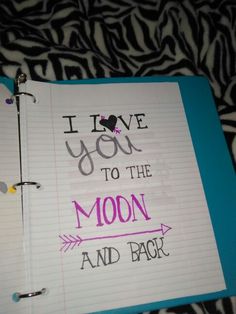 I LOVE
you
TO THE
MOON
AND BACK